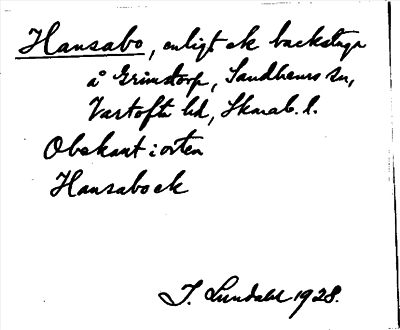 Hansabo, enligt ek backstuga
å Grimstorp, Sandhems sn,
Vartofta hd, Skarab. l.
Obekant i orten
Hansabo ek
J. Lundahl 1928.